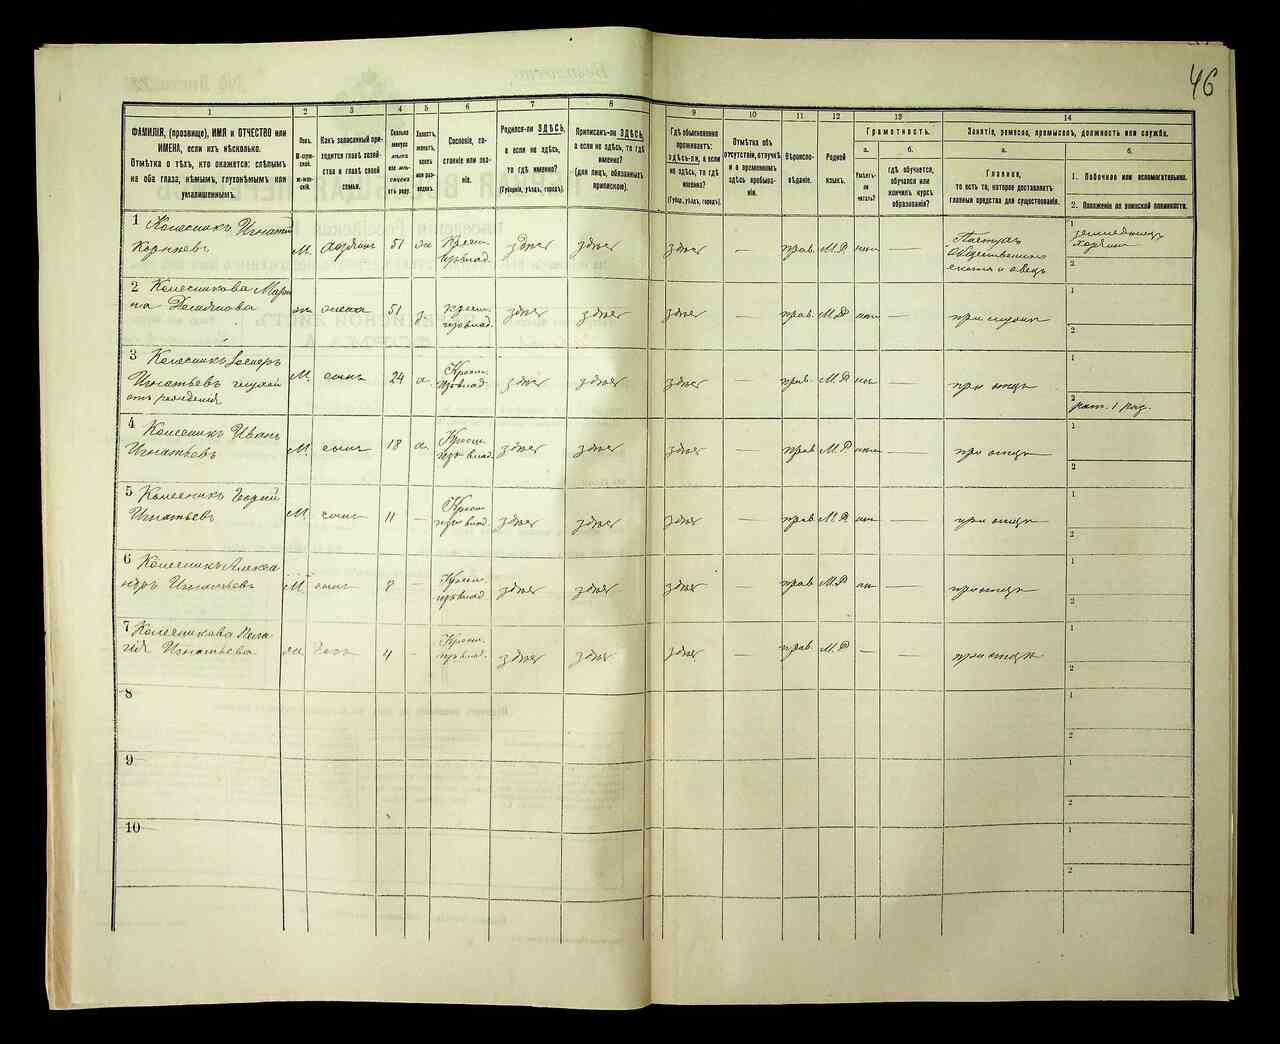 46
1
2
3
4
5
6
7
8
9
10
11
12
13
14
ФАМИЛІЯ, (прозвище), ИМЯ и ОТЧЕСТВО или
ИМЕНА, если ихъ нѣсколько.
Отмѣтка о тѣхъ, кто окажется: слѣпымъ
на оба глаза, нѣмымъ, глухонѣмымъ или
умалишеннымъ.
Полъ.
М-мужской.
ж-женскій.
Какъ записанный приходится
главѣ хозяйства и главѣ своей
семьи.
Сколько
минуло
лѣтъ
или мѣсяцевъ
отъ роду.
Холостъ,
женатъ,
вдовъ
или разведенъ.
Сословіе, состояніе
или званіе.
Родился-ли ЗДѢСЬ,
а если не здѣсь,
то гдѣ именно?
(Губернія, уѣздъ, городъ).
Приписанъ-ли ЗДѢСЬ,
а если не здѣсь, то гдѣ
именно?
(для лицъ, обязанныхъ
припискою).
Гдѣ обыкновенно
проживаетъ:
ЗДѢСЬ-ли, а если
не здѣсь, то гдѣ
именно?
(Губер., уѣздъ, городъ).
Отмѣтка объ
отсутствіи, отлучкѣ
и о временномъ
здѣсь пребываніи.
Вѣроисповѣданіе.
Родной
языкъ.
Грамотность.
а.
Умѣетъ-ли
читать?
б.
гдѣ обучается,
обучался или
кончилъ курсъ
образованія?
Занятіе, ремесло, промыселъ, должность или служба.
а.
Главное,
то есть то, которое доставляетъ
главныя средства для существованія.
б.
1. Побочное или вспомогательное.
2. Положеніе по воинской повинности.
1 Колесникъ Игнатій
Корнѣевъ М. хозяинъ 51 Крест. здѣсь здѣсь здѣсь — прав. М.Р — Пастухъ
общественнаго
скота и овецъ
1
2
2 Колесникова Мари
на 51 крест. здѣсь здѣсь здѣсь — прав. М.Р — при мужѣ
1
2
3 Колесникъ
Игнатьевъ глухой
отъ рожденія М. сынъ 24 Крест. здѣсь здѣсь здѣсь — прав. М.Р — при отцѣ
1
2 рат. 1 раз.
4 Колесникъ Иванъ
Игнатьевъ М. сынъ 18 Крест. здѣсь здѣсь здѣсь — прав М.Р — при отцѣ
1
2
5 Колесникъ Георгій
Игнатьевъ М. сынъ 11 — Крест. здѣсь здѣсь здѣсь — прав М.Р — при отцѣ
1
2
6 Колесникъ Алекса
ндръ Игнатьевъ М. сынъ 8 — Крест. здѣсь здѣсь здѣсь — прав М.Р — при отцѣ
1
2
7 Колесникова Пела
гія Игнатьева дочь 4 — Крест. здѣсь здѣсь здѣсь — прав М.Р — — при отцѣ
1
2
8
1
2
9
1
2
10
1
2